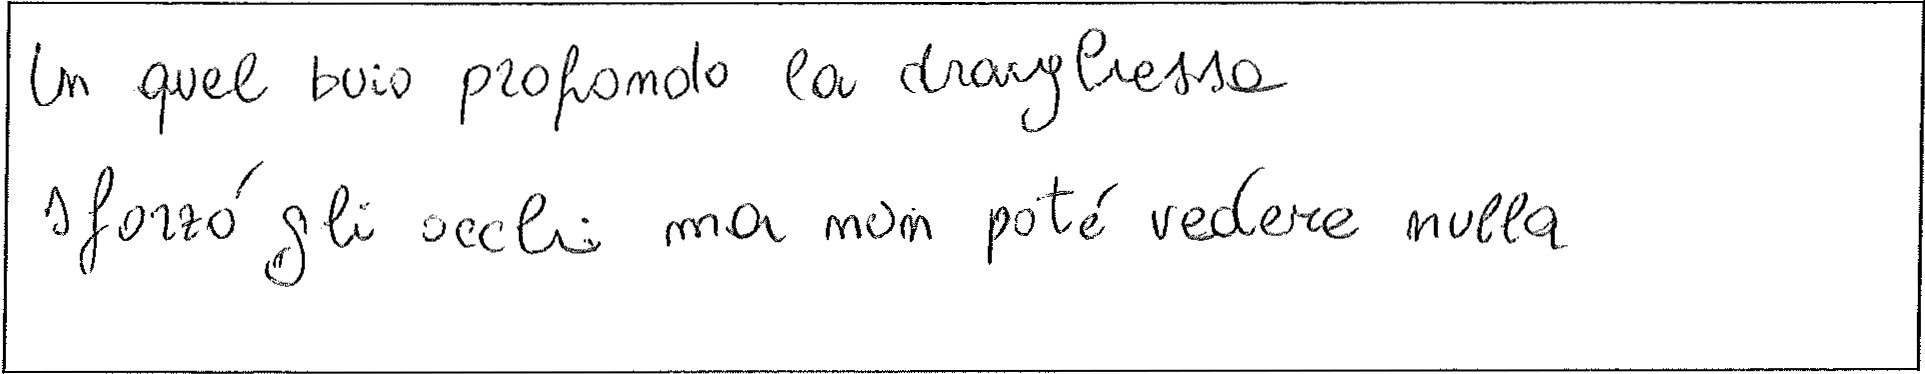 In quel buio profondo la draughessa
sforzó gli occhi ma non poté vedere nulla